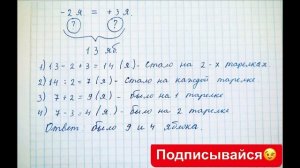 - 2 я = + 3 я.
? ?
13 яб
1) 13 - 2 + 3 = 14 (я) - стало на 2 - х тарелках
2) 14 : 2 = 7 (я) - стало на каждой тарелке
3) 7 + 2 = 9 (я) - было на 1 тарелке
4) 7 - 3 = 4 (я) - было на 2 тарелке
Ответ: было 9 и 4 яблока.
Подписывайся😉